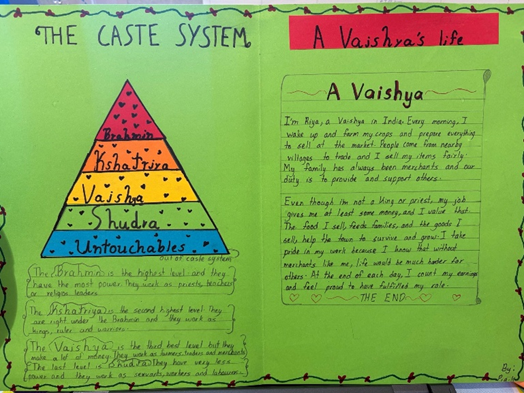 THE CASTE SYSTEM
Brahmin
Kshatriya
Vaishya
Shudra
Untouchables
out of caste system
The Brahmin is the highest level and they
have the most power. They work as priests, teachers
or religion leaders.
The Kshatriya is the second highest level. They
are right under the Brahmin and they work as
kings, ruler and warriors.
The Vaishya is the third best level but they
make a lot of money. They work as farmers, traders and merchants
The last level is Shudra They have very less
power and they work as servants, workers and labourers.
A Vaishya's life
A Vaishya
I'm Riya, a Vaishya in India. Every morning, I
wake up and farm my crops and prepare everything
to sell at the market. People come from nearby
villages to trade and I sell my items fairly.
My family has always been merchants and our
duty is to provide and support others.
Even though i'm not a king or priest, my job
gives me at least some money, and I value that.
The food I sell, feeds families, and the goods I
sell help the town to survive and grow. I take
pride in my work because I know that without
merchants like me, life would be much harder for
others. At the end of each day, I count my earnings
and feel proud to have fulfilled my role.
THE END
By: